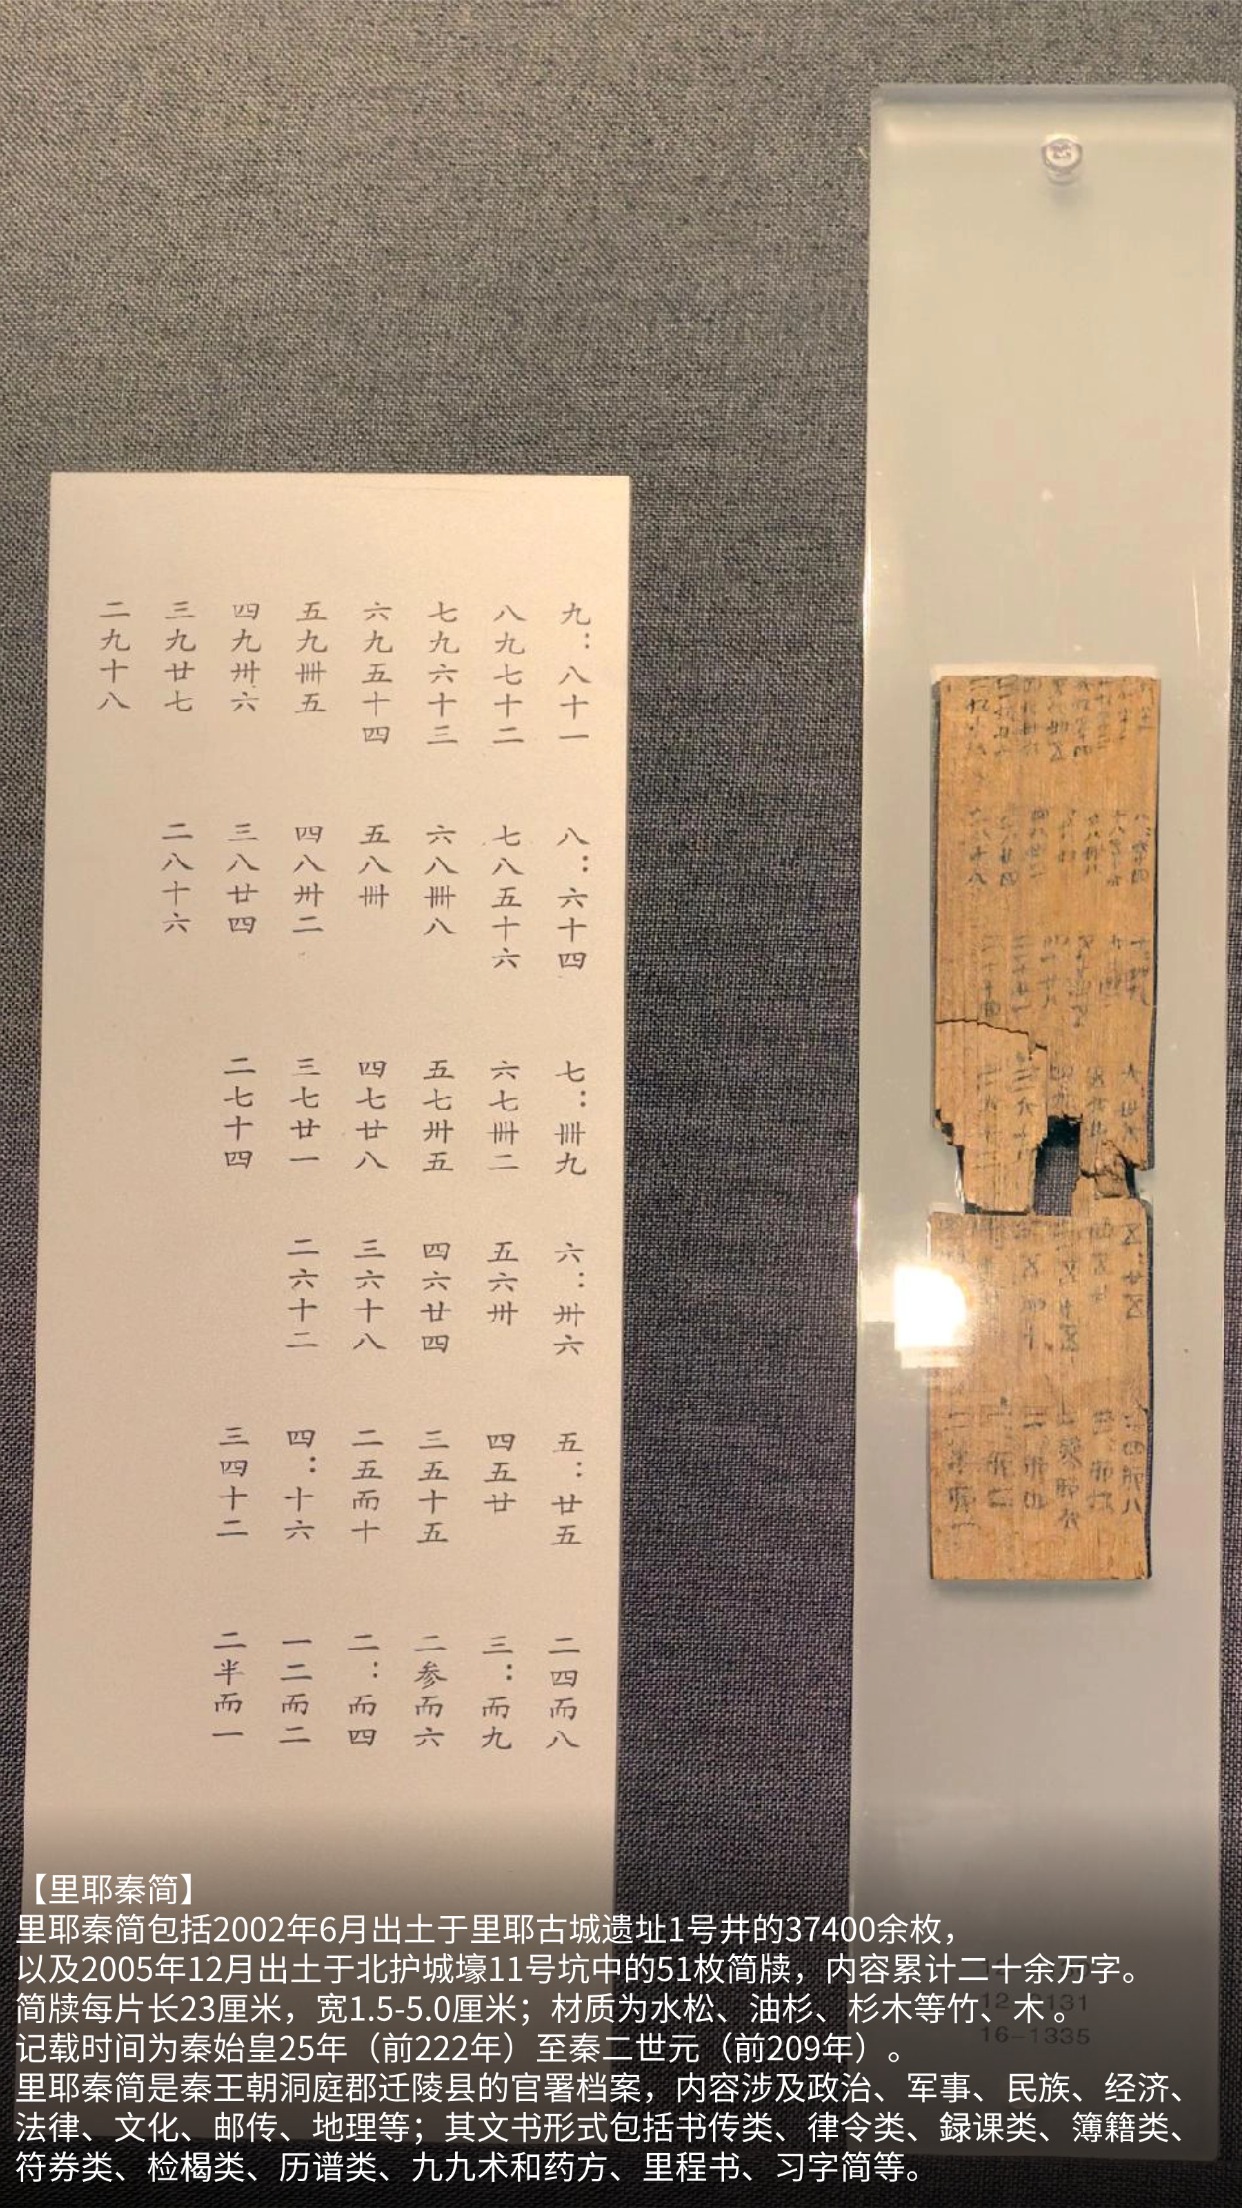 九：八十一
八九七十二
七九六十三
六九五十四
五九卌五
四九卅六
三九廿七
二九十八
八：六十四
七八五十六
六八卌八
五八卌
四八卅二
三八廿四
二八十六
七：卌九
六七卌二
五七卅五
四七廿八
三七廿一
二七十四
六：卅六
五六卅
四六廿四
三六十八
二六十二
五：廿五
四五廿
三五十五
二五而十
四：十六
三四十二
二四而八
三：而九
二参而六
二：而四
一二而二
二半而一
12-2131
16-1335
【里耶秦简】
里耶秦简包括2002年6月出土于里耶古城遗址1号井的37400余枚，
以及2005年12月出土于北护城壕11号坑中的51枚简牍，内容累计二十余万字。
简牍每片长23厘米，宽1.5-5.0厘米；材质为水松、油杉、杉木等竹、木 。
记载时间为秦始皇25年（前222年）至秦二世元（前209年）。
里耶秦简是秦王朝洞庭郡迁陵县的官署档案，内容涉及政治、军事、民族、经济、
法律、文化、邮传、地理等；其文书形式包括书传类、律令类、録课类、簿籍类、
符券类、检楬类、历谱类、九九术和药方、里程书、习字简等。